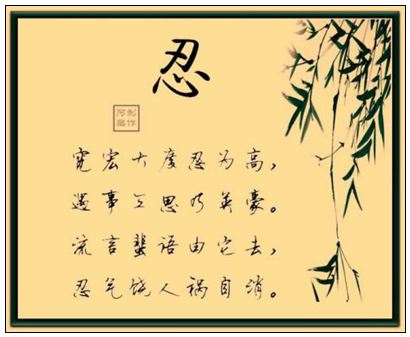 忍
宽宏大度忍为高，
遇事三思乃英豪。
流言蜚语由它去，
忍气饶人祸自消。